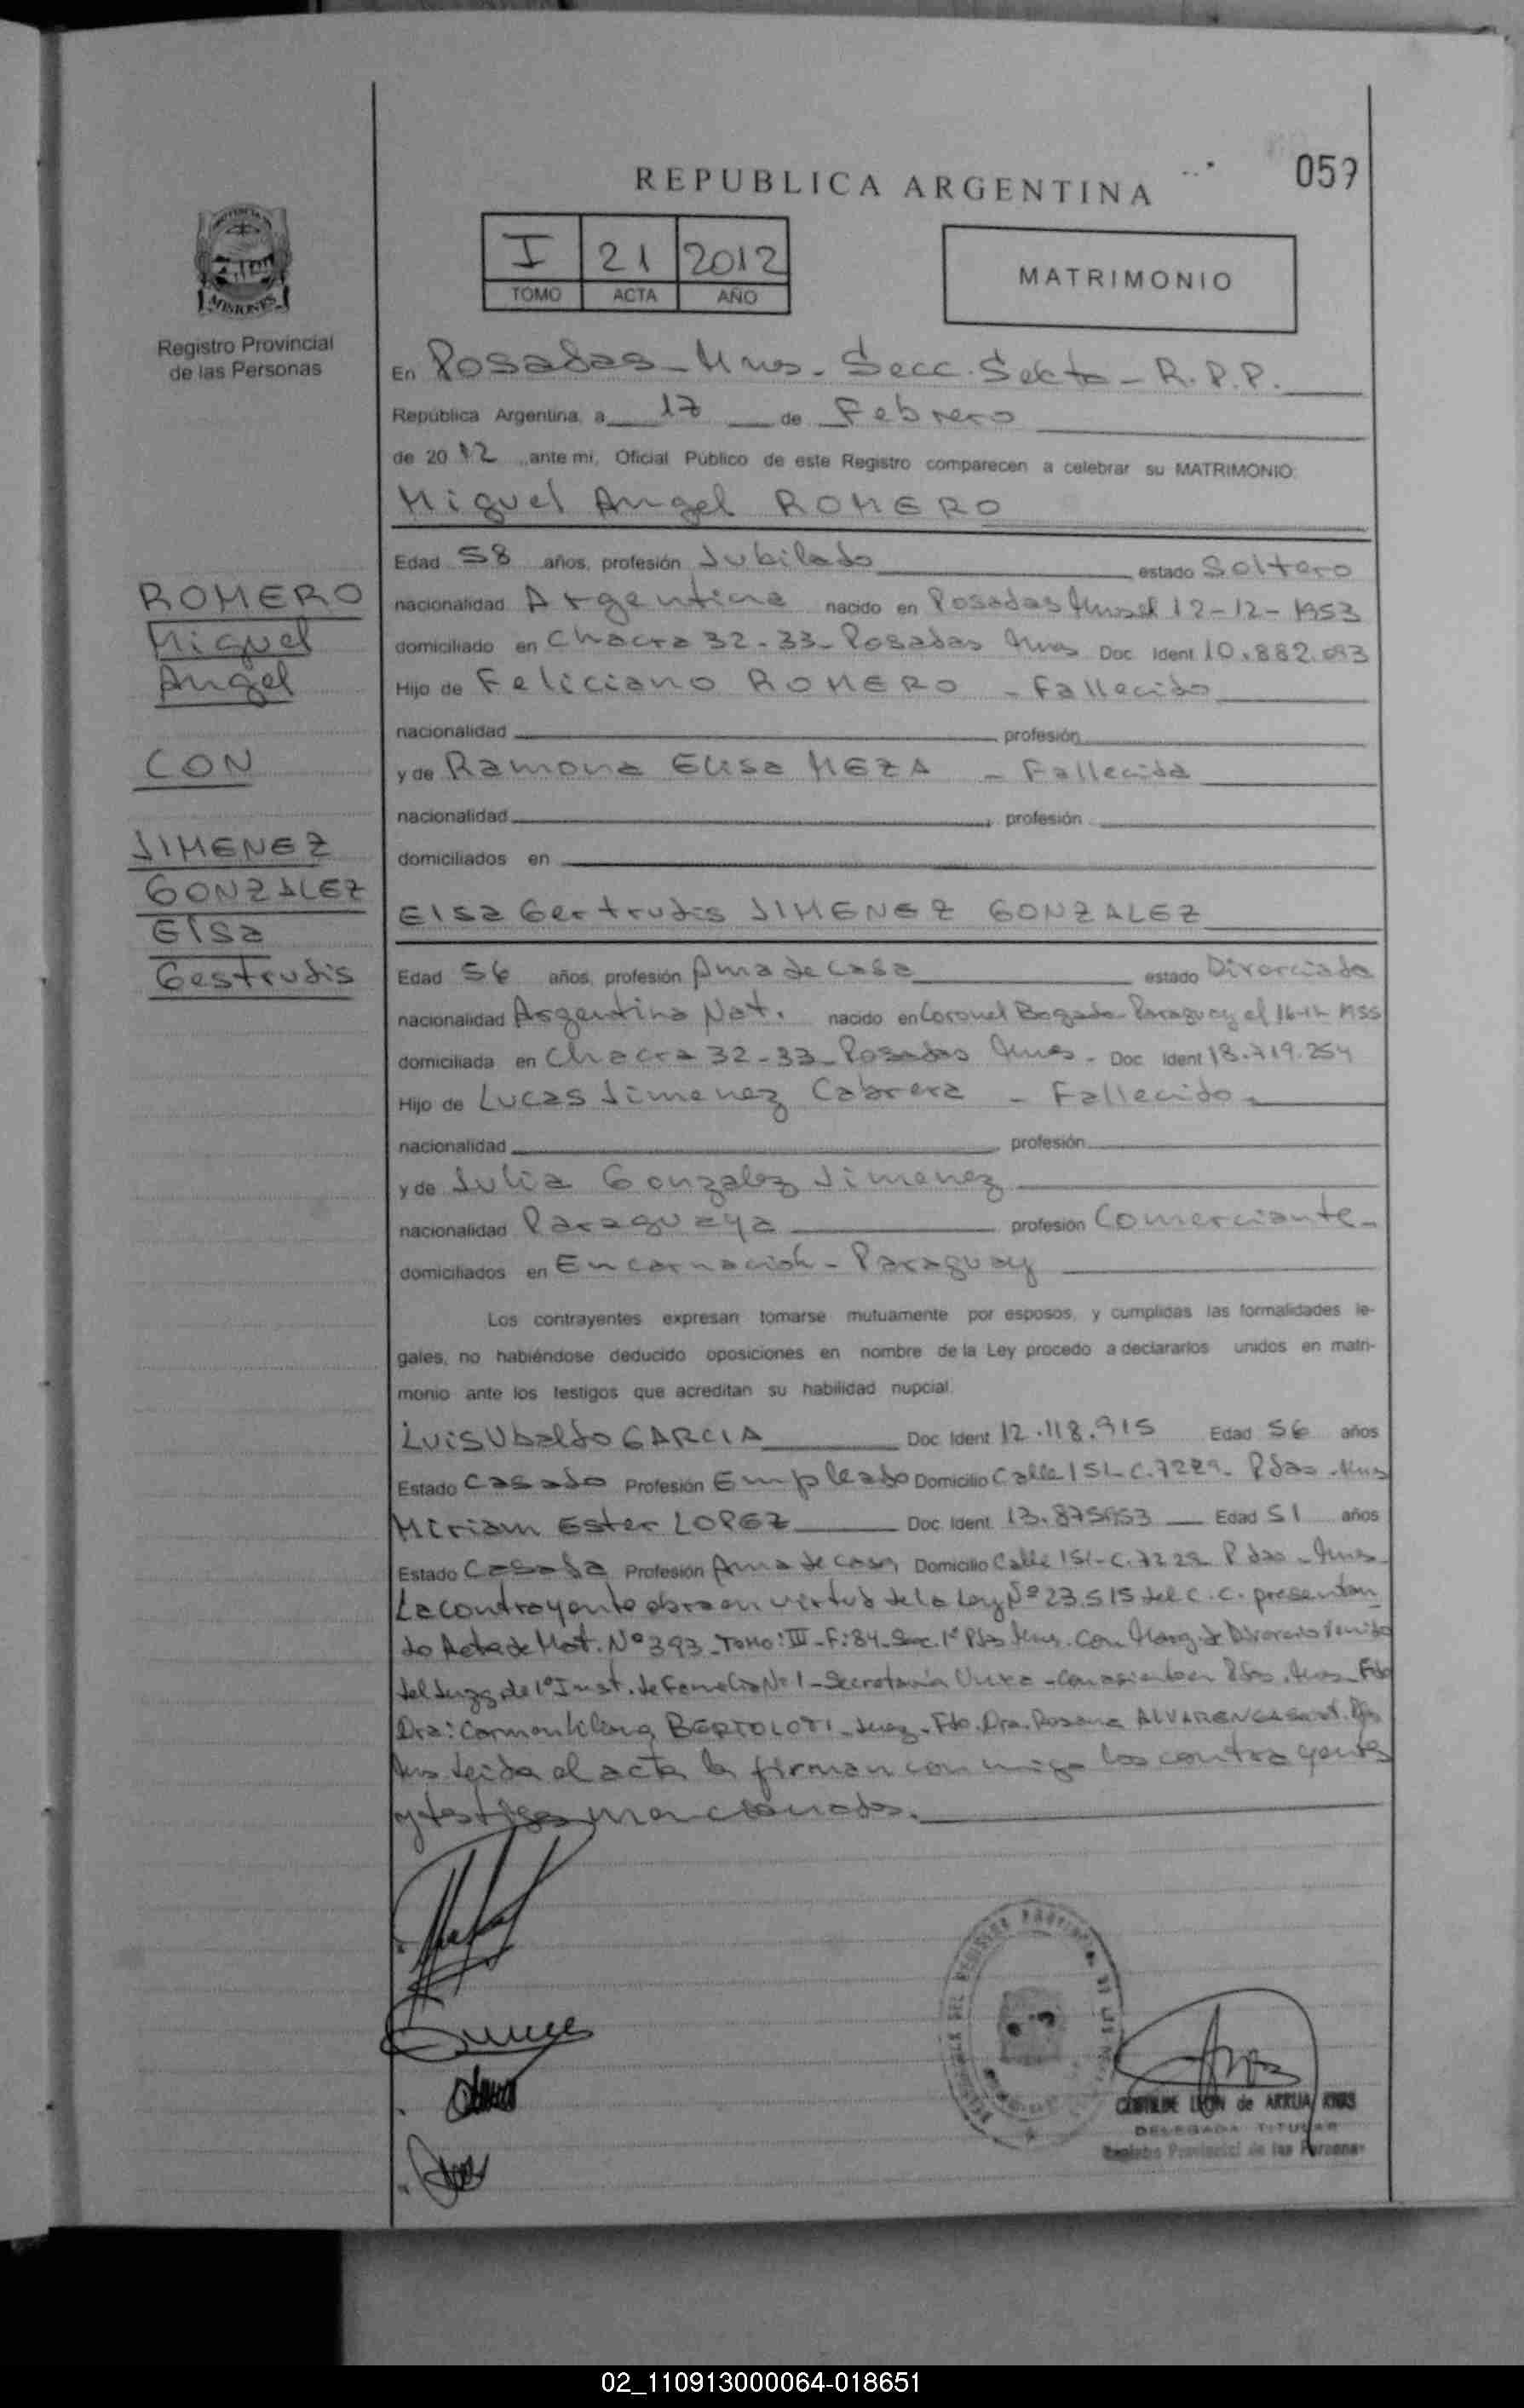 REPUBLICA ARGENTINA
059
I 21 2012
TOMO ACTA AÑO
MATRIMONIO
MISIONES
Registro Provincial
de las Personas
En Posadas - Mnes - Secc. Sexta - R.P.P.
República Argentina, a 17 de Febrero
de 2012 ,ante mi, Oficial Público de este Registro comparecen a celebrar su MATRIMONIO:
Miguel Angel ROMERO
Edad 58 años, profesión Jubilado estado Soltero
nacionalidad Argentina nacido en Posadas Mnes el 12-12-1953
domiciliado en Chacra 32-33- Posadas Mnes Doc. Ident. 10.882.093
Hijo de Feliciano ROMERO - Fallecido
nacionalidad profesión
y de Ramona Elisa MEZA - Fallecida
nacionalidad profesión
domiciliados en
ROMERO
Miguel
Angel
CON
JIMENEZ
GONZALEZ
Elsa
Gestrudis
Elsa Gertrudis JIMENEZ GONZALEZ
Edad 56 años, profesión Ama de casa estado Divorciada
nacionalidad Argentina Nat. nacido en Coronel Bogado - Paraguay el 1955
domiciliada en Chacra 32-33- Posadas Mnes - Doc. Ident. 18.719.254
Hijo de Lucas Jimenez Cabrera - Fallecido -
nacionalidad profesión
y de Julia Gonzalez Jimenez
nacionalidad Paraguaya profesión Comerciante -
domiciliados en Encarnación - Paraguay
Los contrayentes expresan tomarse mutuamente por esposos, y cumplidas las formalidades le-
gales, no habiéndose deducido oposiciones en nombre de la Ley procedo a declararlos unidos en matri-
monio ante los testigos que acreditan su habilidad nupcial.
Luis Ubaldo GARCIA Doc. Ident. 12.118.915 Edad 56 años
Estado Casado Profesión Empleado Domicilio Calle 151- C.7229- Pdas - Mnes
Miriam Ester LOPEZ Doc. Ident. Edad 51 años
Estado Casada Profesión Ama de casa Domicilio Calle 151- C.7229 Pdas - Mnes -
La contrayente obra en virtud de la Ley Nº 23.515 del C.C. presentan
do Acta de Mat. Nº 393 - Tomo: III - F: 84 - Secc. 1ª Pdas Mnes. Con Marg. de Divorcio
del Juzg. de 1ª Inst. de Familia Nº 1 - Secretaría Unica - con asiento en Pdas. Mnes - Fdo
Dra: Carmen BERTOLOTI - Juez - Fdo. Dra. Rosana ALVARENGA
Mns. Leida el acta la firman con migo los contrayentes
y testigos mencionados.
de ARRUA
DELEGADA TITULAR
Registro Provincial de las Personas
02_110913000064-018651